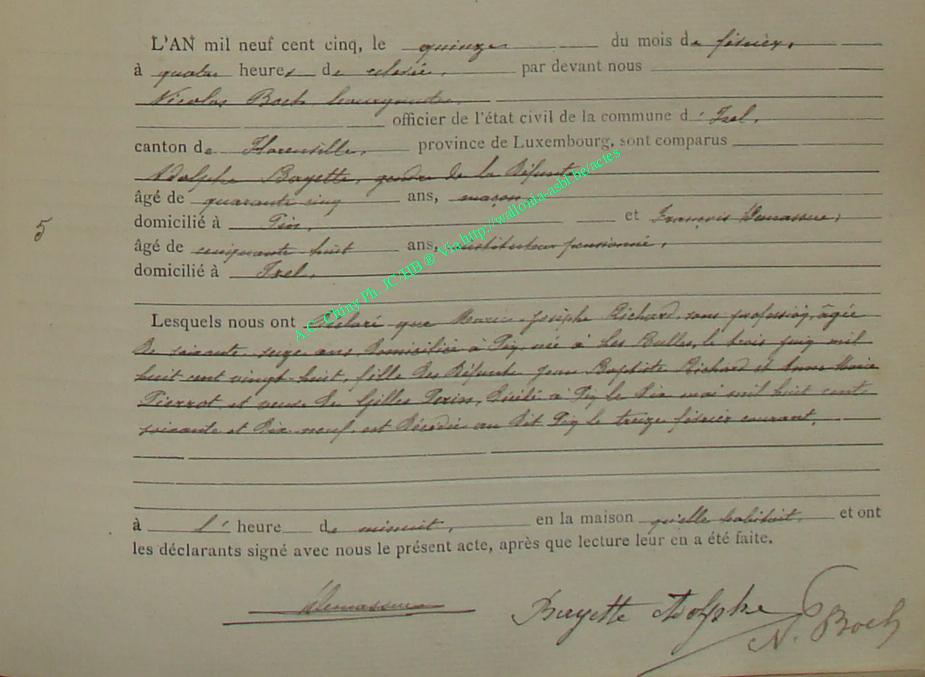 L'AN mil neuf cent cinq, le quinze du mois de février,
à quatre heures de relevée, par devant nous
Nicolas Boch, bourgmestre,
officier de l'état civil de la commune d'Izel,
canton de Florenville, province de Luxembourg, sont comparus
Adolphe Bayette, gendre de la défunte
âgé de quarante cinq ans, maçon
domicilié à Pin, et François Demasseur,
5
âgé de cinquante huit ans, instituteur pensionné,
domicilié à Izel,
Lesquels nous ont déclaré que Marie-Josèphe Richard, sans profession, âgée
de soixante seize ans, domiciliée à Pin, née à Les Bulles, le trois juin mil
huit cent vingt-huit, fille des défunts Jean Baptiste Richard et Anne Marie
Pierrot et veuve de Gilles Perin, décédé à Pin le dix mai mil huit cent
soixante et dix-neuf, est décédée au dit Pin le treize février courant,
à l'heure de minuit, en la maison qu'elle habitait, et ont
les déclarants signé avec nous le présent acte, après que lecture leur en a été faite.
Bayette Adolphe
N. Boch
A.C. Chiny Ph. JC HB ® Via http://wallonia-asbl.be/actes